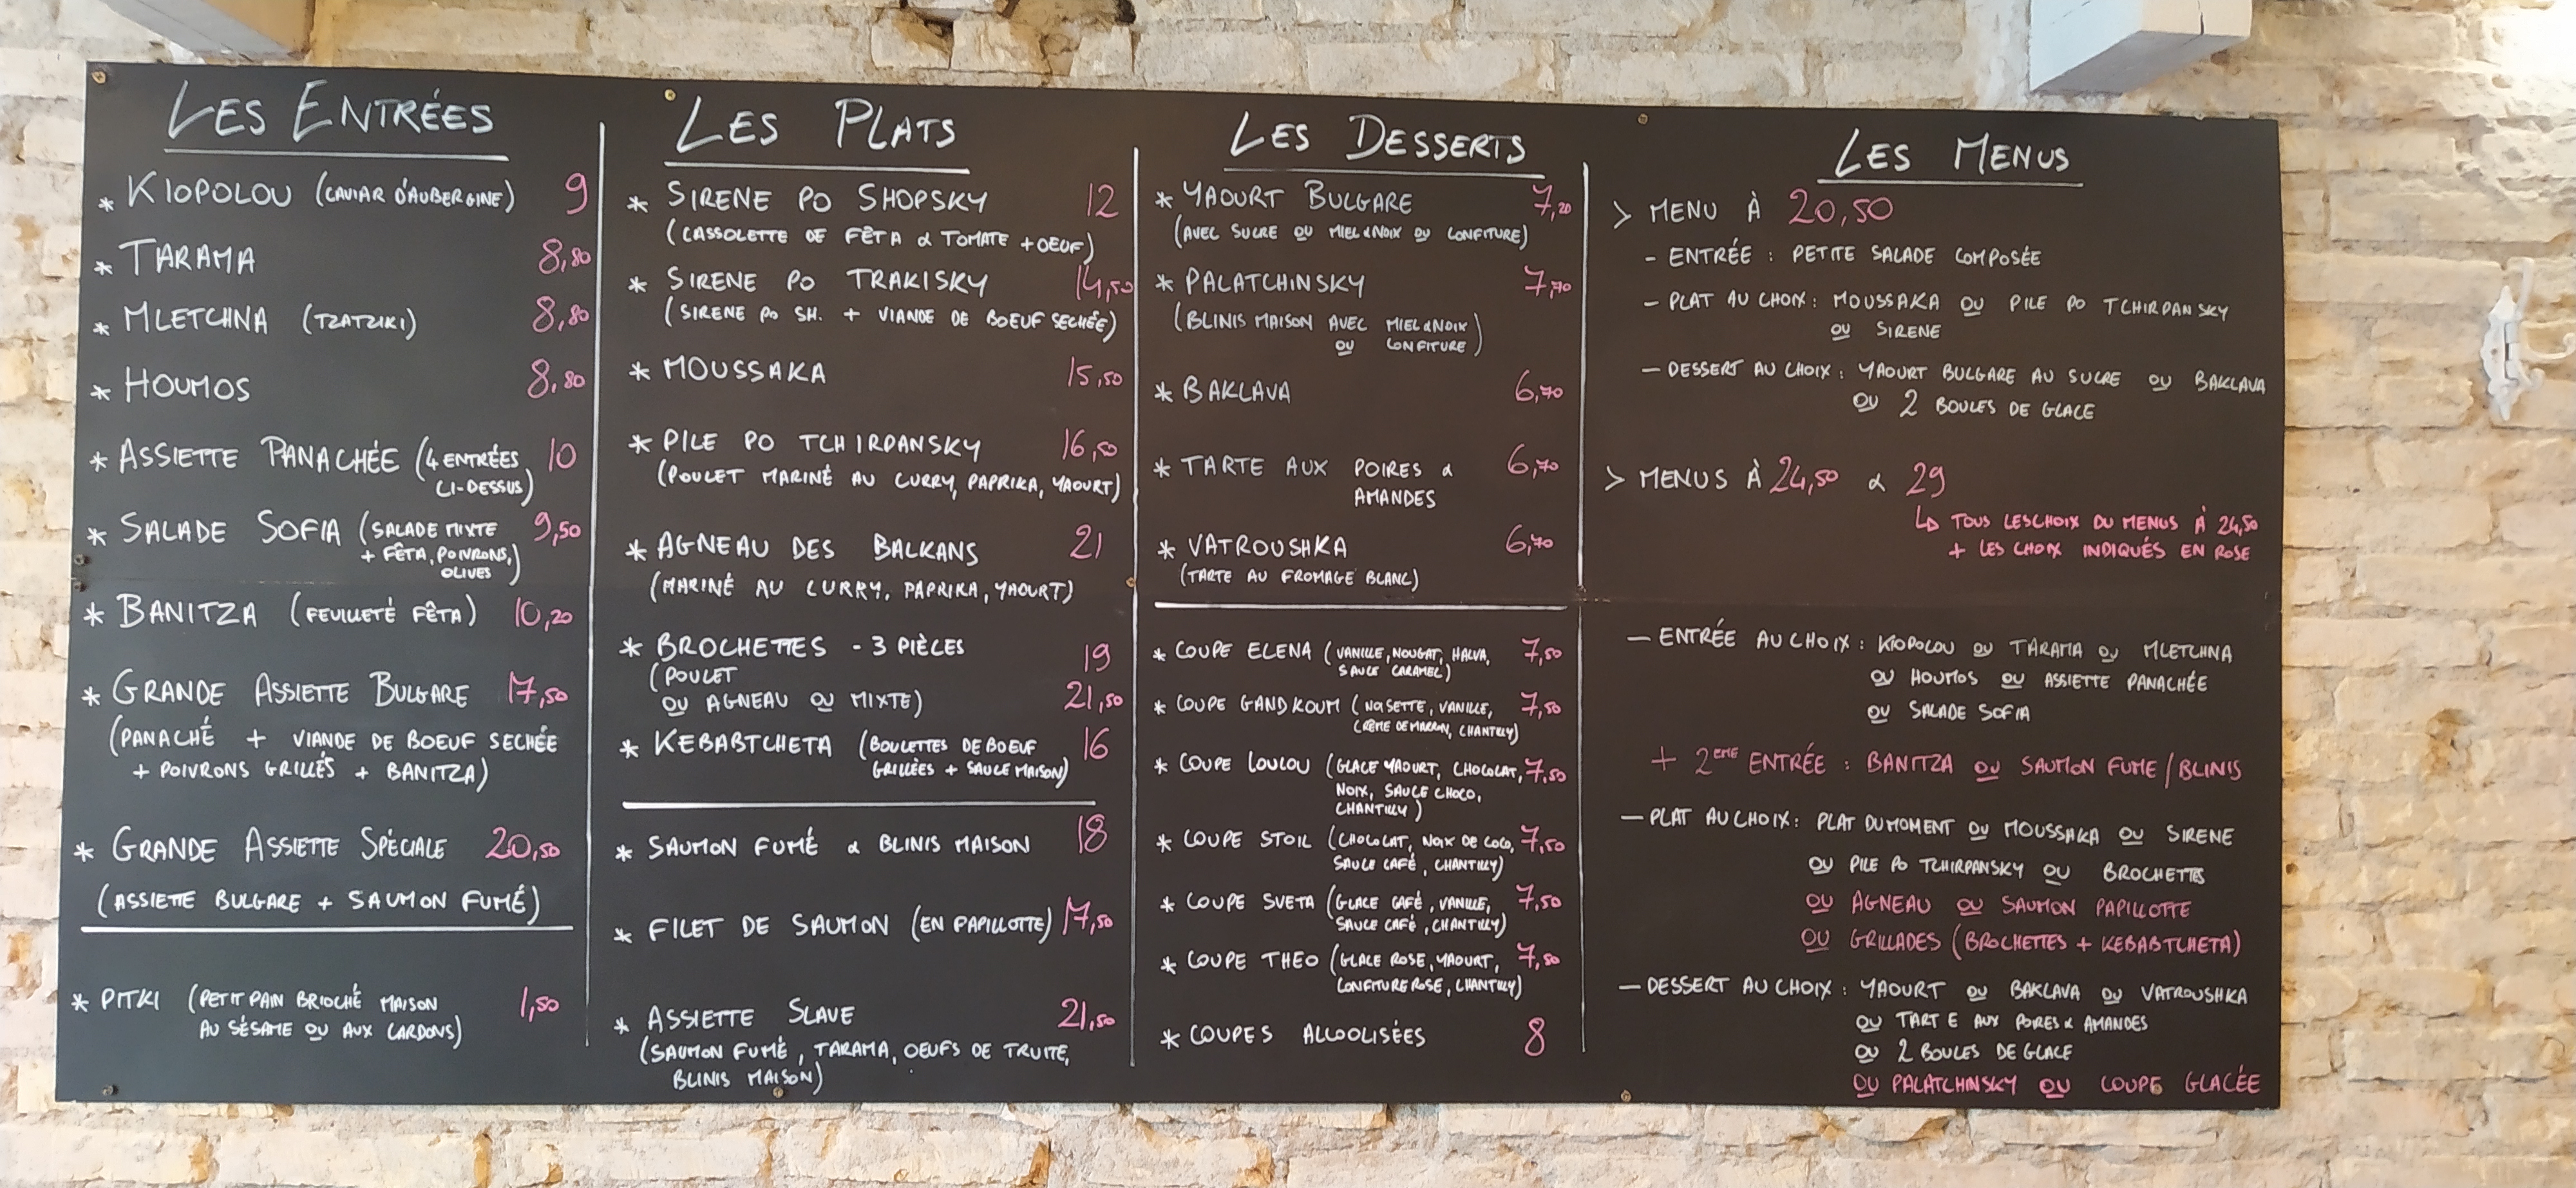 LES ENTRÉES
* KIOPOLOU (CAVIAR D'AUBERGINE) 9
* TARAMA 8,80
* MLETCHNA (TZATZIKI) 8,80
* HOUMOS 8,80
* ASSIETTE PANACHÉE (4 ENTRÉES 10
CI-DESSUS)
* SALADE SOFIA (SALADE MIXTE 9,50
+ FÊTA, POIVRONS,
OLIVES)
* BANITZA (FEUILLETÉ FÊTA) 10,20
* GRANDE ASSIETTE BULGARE 17,50
(PANACHÉ + VIANDE DE BOEUF SECHÉE
+ POIVRONS GRILLÉS + BANITZA)
* GRANDE ASSIETTE SPÉCIALE 20,50
(ASSIETTE BULGARE + SAUMON FUMÉ)
* PITKI (PETIT PAIN BRIOCHÉ MAISON 1,50
AU SÉSAME OU AUX LARDONS)
LES PLATS
* SIRENE PO SHOPSKY 12
(CASSOLETTE DE FÊTA & TOMATE + OEUF)
* SIRENE PO TRAKISKY 14,50
(SIRENE PO SH. + VIANDE DE BOEUF SECHÉE)
* MOUSSAKA 15,50
* PILE PO TCHIRPANSKY 16,50
(POULET MARINÉ AU CURRY, PAPRIKA, YAOURT)
* AGNEAU DES BALKANS 21
(MARINÉ AU CURRY, PAPRIKA, YAOURT)
* BROCHETTES - 3 PIÈCES
(POULET 19
OU AGNEAU OU MIXTE) 21,50
* KEBABTCHETA (BOULETTES DE BOEUF 16
GRILLÉES + SAUCE MAISON)
* SAUMON FUMÉ & BLINIS MAISON 18
* FILET DE SAUMON (EN PAPILLOTTE) 17,50
* ASSIETTE SLAVE 21,50
(SAUMON FUMÉ, TARAMA, OEUFS DE TRUITE,
BLINIS MAISON)
LES DESSERTS
* YAOURT BULGARE 7,20
(AVEC SUCRE OU MIEL & NOIX OU CONFITURE)
* PALATCHINSKY 7,70
(BLINIS MAISON AVEC MIEL & NOIX
OU CONFITURE)
* BAKLAVA 6,70
* TARTE AUX POIRES & 6,70
AMANDES
* VATROUSHKA 6,70
(TARTE AU FROMAGE BLANC)
* COUPE ELENA (VANILLE, NOUGAT, HALVA, 7,50
SAUCE CARAMEL)
* COUPE GANDKOUM (NOISETTE, VANILLE, 7,50
CRÈME DE MARRON, CHANTILLY)
* COUPE LOULOU (GLACE YAOURT, CHOCOLAT, 7,50
NOIX, SAUCE CHOCO,
CHANTILLY)
* COUPE STOIL (CHOCOLAT, NOIX DE COCO, 7,50
SAUCE CAFÉ, CHANTILLY)
* COUPE SVETA (GLACE CAFÉ, VANILLE, 7,50
SAUCE CAFÉ, CHANTILLY)
* COUPE THEO (GLACE ROSE, YAOURT, 7,50
CONFITURE ROSE, CHANTILLY)
* COUPES ALCOOLISÉES 8
LES MENUS
> MENU À 20,50
- ENTRÉE : PETITE SALADE COMPOSÉE
- PLAT AU CHOIX : MOUSSAKA OU PILE PO TCHIRPANSKY
OU SIRENE
- DESSERT AU CHOIX : YAOURT BULGARE AU SUCRE OU BAKLAVA
OU 2 BOULES DE GLACE
> MENUS À 24,50 & 29
↳ TOUS LES CHOIX DU MENUS À 24,50
+ LES CHOIX INDIQUÉS EN ROSE
- ENTRÉE AU CHOIX : KIOPOLOU OU TARAMA OU MLETCHNA
OU HOUMOS OU ASSIETTE PANACHÉE
OU SALADE SOFIA
+ 2EME ENTRÉE : BANITZA OU SAUMON FUME / BLINIS
- PLAT AU CHOIX : PLAT DU MOMENT OU MOUSSAKA OU SIRENE
OU PILE PO TCHIRPANSKY OU BROCHETTES
OU AGNEAU OU SAUMON PAPILLOTTE
OU GRILLADES (BROCHETTES + KEBABTCHETA)
- DESSERT AU CHOIX : YAOURT OU BAKLAVA OU VATROUSHKA
OU TARTE AUX POIRES & AMANDES
OU 2 BOULES DE GLACE
OU PALATCHINSKY OU COUPE GLACÉE